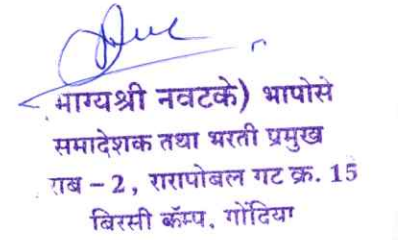 भाग्यश्री नवटके) भापोसे
समादेशक तथा भरती प्रमुख
राब - 2, रारापोबल गट क्र. 15
बिरसी कॅम्प, गोंदिया